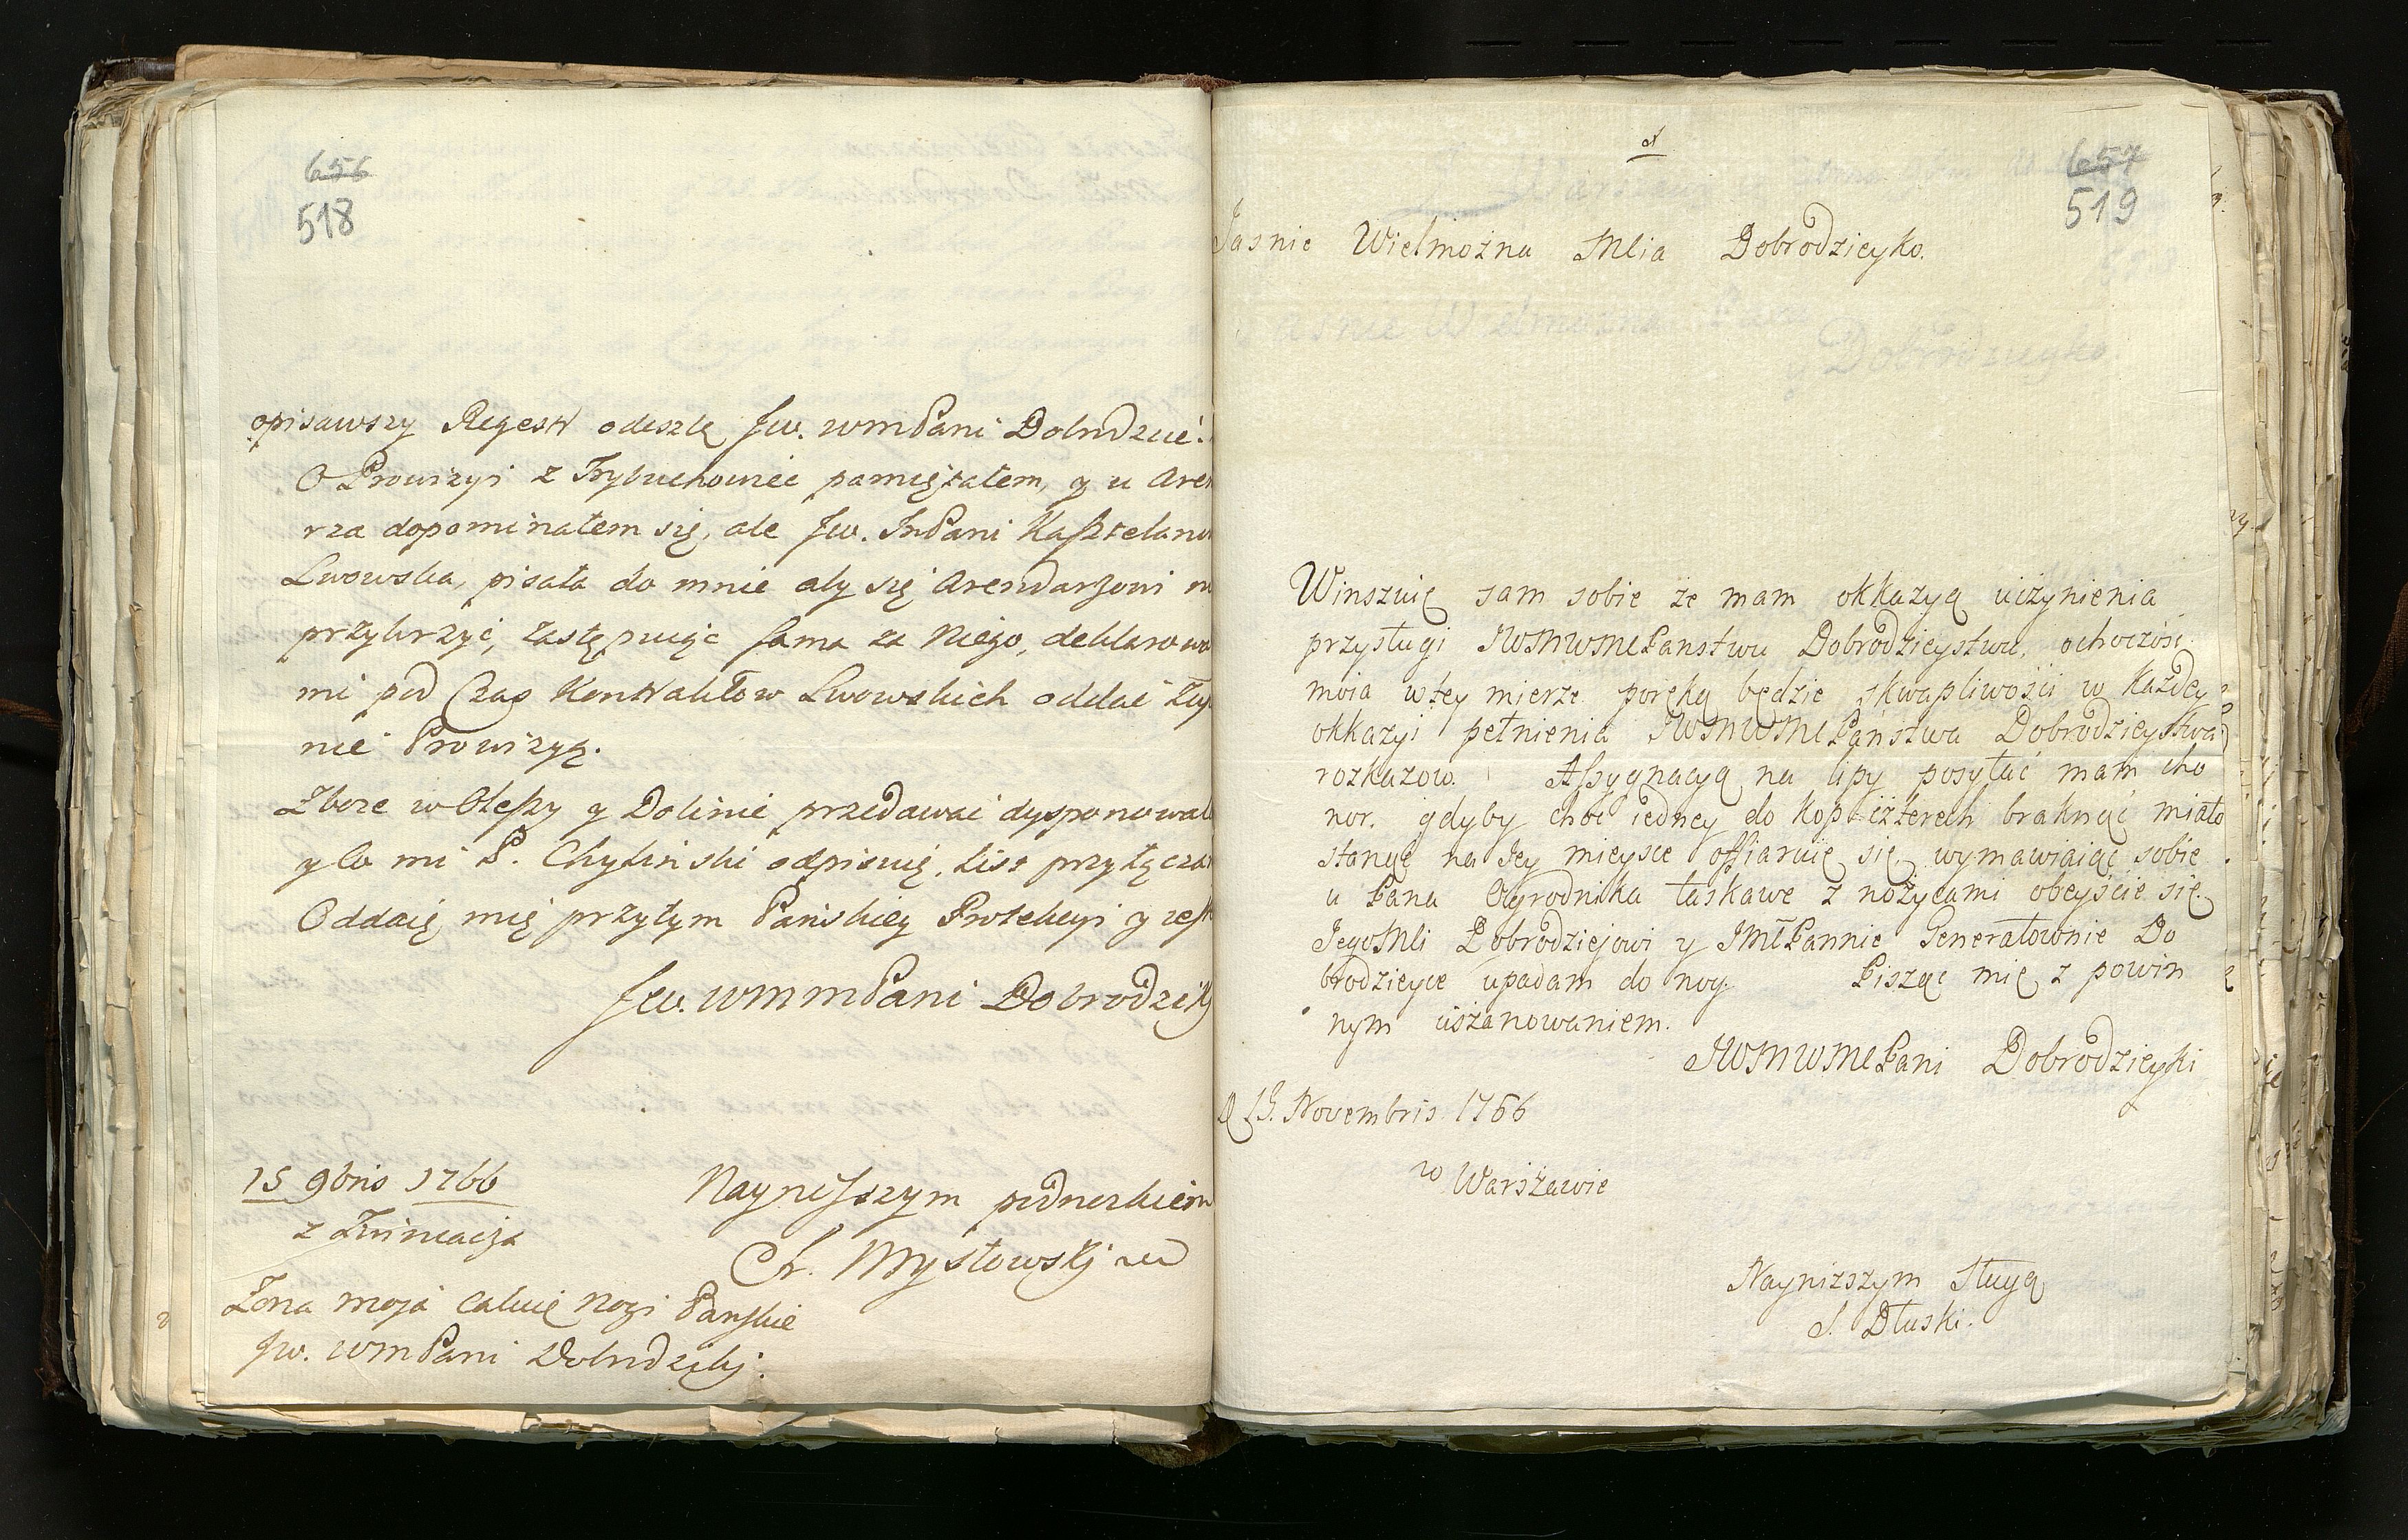 656
518
opisawszy Regestr odeszlę Jw. WMPani Dobrodzie
O Prowizyi z Trybuchowiec pamiętałem, y u Aren
rza dopominałem się, ale Jw. ImPani Kasztelano
Lwowska, pisała do mnie aby się Arendarzowi n
przykrzyć, zastępuiąc sama za niego, deklarowa
mi pod Czas Kontraktow Lwowskich oddać
nie Prowizyą.
Zboże w Oleszy y Dolinie przedawać dysponowałe
y co mi P. Chyliński odpisuię, list przyłącza
Oddaię mię przytym Pańskiey Protekcyi y
Jw. WMMPani Dobrodziki
15 9bris 1766
z
Nayniższym podnożkiem
Ch. Mysłowskj
Zona moja całuię nogi Pańskie
Jw. WMPani Dobrodziki.
657
519
Jasnie Wielmożna Mcia Dobrodzieyko.
Winszuię sam sobie że mam okkazyą uczynienia
przysługi JWMWMCPanstwu Dobrodzieystwu, ochoczość
moia w tey mierze poręką będzie skwapliwości w każdey
okkazyi pełnienia JWMWMCPaństwa Dobrodzieystwa
rozkazow. Assygnacyą na lipy posyłać mam cho
nor. gdyby choć iedney do kop czterech braknąć miało
stanąć na Jey mieysce offiaruię się, wymawiaiąc sobie
u Pana Ogrodnika łaskawe z nożycami obeyście się.
JegoMci Dobrodziejowi y JMCPannie Generałownie Do
brodzieyce upadam do nog. Pisząc mię z powin
nym uszanowaniem.
JWMWMCPani Dobrodzieyki
D 15. Novembris 1766
w Warszawie
Nayniższym Sługą
S. Dłuski.